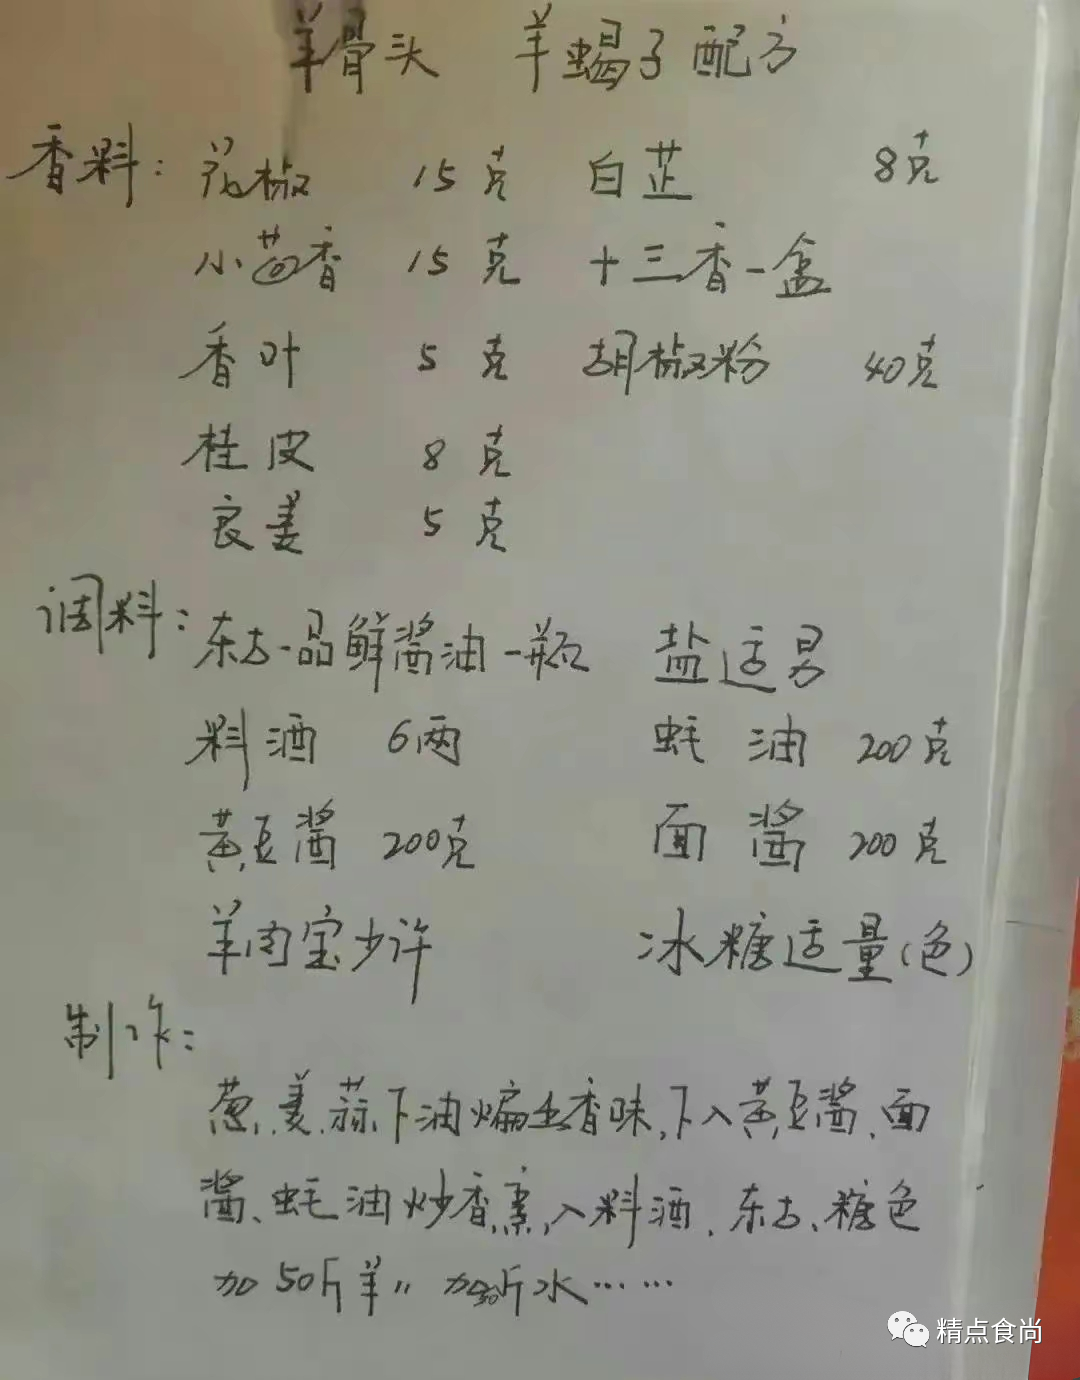 羊骨头 羊蝎子配方
香料: 花椒 15克 白芷 8克
小茴香 15克 十三香一盒
香叶 5克 胡椒粉 40克
桂皮 8克
良姜 5克
调料: 东古一品鲜酱油一瓶 盐适量
料酒 6两 蚝油 200克
黄豆酱 200克 面酱 200克
羊肉宝少许 冰糖适量(色)
制作:
葱、姜、蒜下油煸出香味,下入黄豆酱、面
酱、蚝油炒香,烹入料酒、东古、糖色
加50斤羊〃 加 斤水……
精点食尚